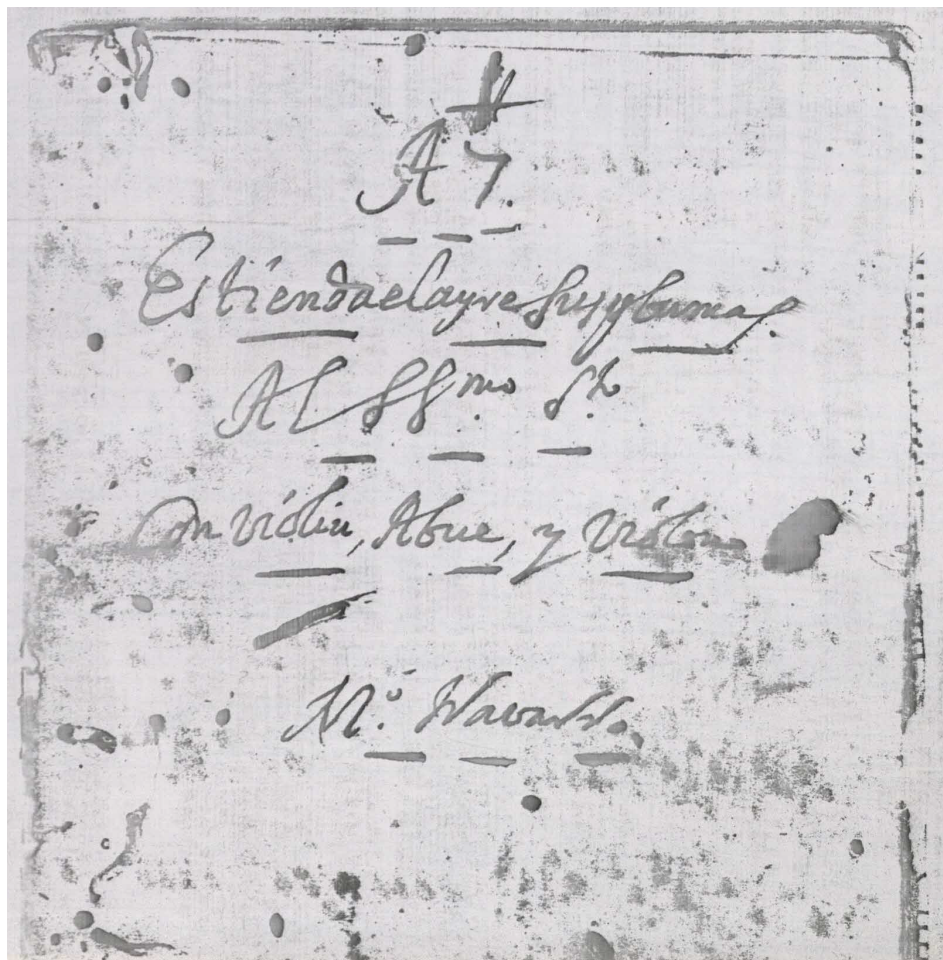 A 7.
Estiendaelayre Susplumas
Al SSmo. St.
Con violin, Abue, y Violon
Mo. Navarro